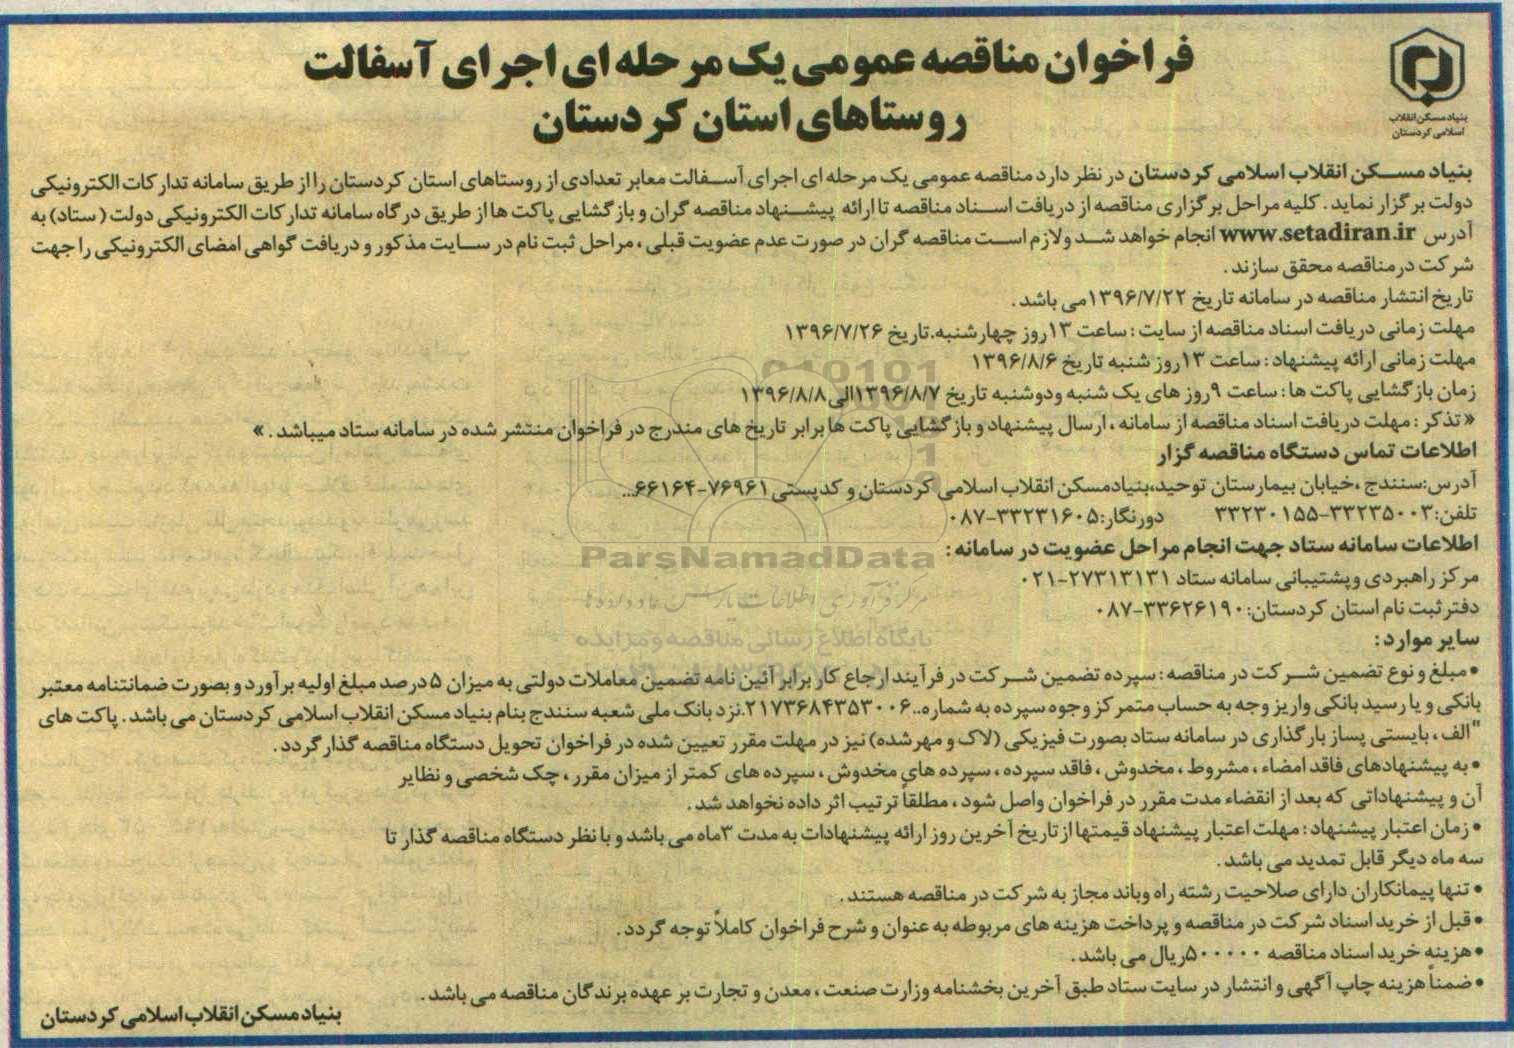 بنیاد مسکن انقلاب
اسلامی کردستان
فراخوان مناقصه عمومی یک مرحله ای اجرای آسفالت
روستاهای استان کردستان
بنیاد مسکن انقلاب اسلامی کردستان در نظر دارد مناقصه عمومی یک مرحله ای اجرای آسفالت معابر تعدادی از روستاهای استان کردستان را از طریق سامانه تدارکات الکترونیکی
دولت برگزار نماید . کلیه مراحل برگزاری مناقصه از دریافت اسناد مناقصه تا ارائه پیشنهاد مناقصه گران و بازگشایی پاکت ها از طریق درگاه سامانه تدارکات الکترونیکی دولت ( ستاد) به
آدرس www.setadiran.ir انجام خواهد شد ولازم است مناقصه گران در صورت عدم عضویت قبلی ، مراحل ثبت نام در سایت مذکور و دریافت گواهی امضای الکترونیکی را جهت
شرکت درمناقصه محقق سازند .
تاریخ انتشار مناقصه در سامانه تاریخ ۱۳۹۶/۷/۲۲می باشد .
مهلت زمانی دریافت اسناد مناقصه از سایت : ساعت ۱۳روز چهارشنبه.تاریخ ۱۳۹۶/۷/۲۶
مهلت زمانی ارائه پیشنهاد : ساعت ۱۳روز شنبه تاریخ ۱۳۹۶/۸/۶
زمان بازگشایی پاکت ها : ساعت ۹روز های یک شنبه ودوشنبه تاریخ ۱۳۹۶/۸/۷الی۱۳۹۶/۸/۸
« تذکر : مهلت دریافت اسناد مناقصه از سامانه ، ارسال پیشنهاد و بازگشایی پاکت ها برابر تاریخ های مندرج در فراخوان منتشر شده در سامانه ستاد میباشد . »
اطلاعات تماس دستگاه مناقصه گزار
آدرس:سنندج ،خیابان بیمارستان توحید،بنیادمسکن انقلاب اسلامی کردستان و کدپستی ۷۶۹۶۱-۶۶۱۶۴...
تلفن:۳۳۲۳۵۰۰۳-۳۳۲۳۰۱۵۵ دورنگار:۳۳۲۳۱۶۰۵-۰۸۷
اطلاعات سامانه ستاد جهت انجام مراحل عضویت در سامانه :
مرکز راهبردی وپشتیبانی سامانه ستاد ۲۷۳۱۳۱۳۱-۰۲۱
دفترثبت نام استان کردستان:۳۳۶۲۶۱۹۰-۰۸۷
سایر موارد :
• مبلغ و نوع تضمین شرکت در مناقصه : سپرده تضمین شرکت در فرآیند ارجاع کار برابر آئین نامه تضمین معاملات دولتی به میزان ۵درصد مبلغ اولیه برآورد و بصورت ضمانتنامه معتبر
بانکی و یا رسید بانکی واریز وجه به حساب متمرکز وجوه سپرده به شماره..۲۱۷۳۶۸۴۳۵۳۰۰۶.نزد بانک ملی شعبه سنندج بنام بنیاد مسکن انقلاب اسلامی کردستان می باشد . پاکت های
"الف ، بایستی پساز بارگذاری در سامانه ستاد بصورت فیزیکی (لاک و مهرشده) نیز در مهلت مقرر تعیین شده در فراخوان تحویل دستگاه مناقصه گذار گردد .
• به پیشنهادهای فاقد امضاء ، مشروط ، مخدوش ، فاقد سپرده ، سپرده های مخدوش ، سپرده های کمتر از میزان مقرر ، چک شخصی و نظایر
آن و پیشنهاداتی که بعد از انقضاء مدت مقرر در فراخوان واصل شود ، مطلقاً ترتیب اثر داده نخواهد شد .
• زمان اعتبار پیشنهاد : مهلت اعتبار پیشنهاد قیمتها از تاریخ آخرین روز ارائه پیشنهادات به مدت ۳ماه می باشد و با نظر دستگاه مناقصه گذار تا
سه ماه دیگر قابل تمدید می باشد .
• تنها پیمانکاران دارای صلاحیت رشته راه وباند مجاز به شرکت در مناقصه هستند .
• قبل از خرید اسناد شرکت در مناقصه و پرداخت هزینه های مربوطه به عنوان و شرح فراخوان کاملاً توجه گردد .
• هزینه خرید اسناد مناقصه ۵۰۰۰۰۰ریال می باشد .
• ضمناً هزینه چاپ آگهی و انتشار در سایت ستاد طبق آخرین بخشنامه وزارت صنعت ، معدن و تجارت بر عهده برندگان مناقصه می باشد .
بنیاد مسکن انقلاب اسلامی کردستان
ParsNamadData
مرکز فرآوری اطلاعات پارس نماد داده ها
پایگاه اطلاع رسانی مناقصه و مزایده